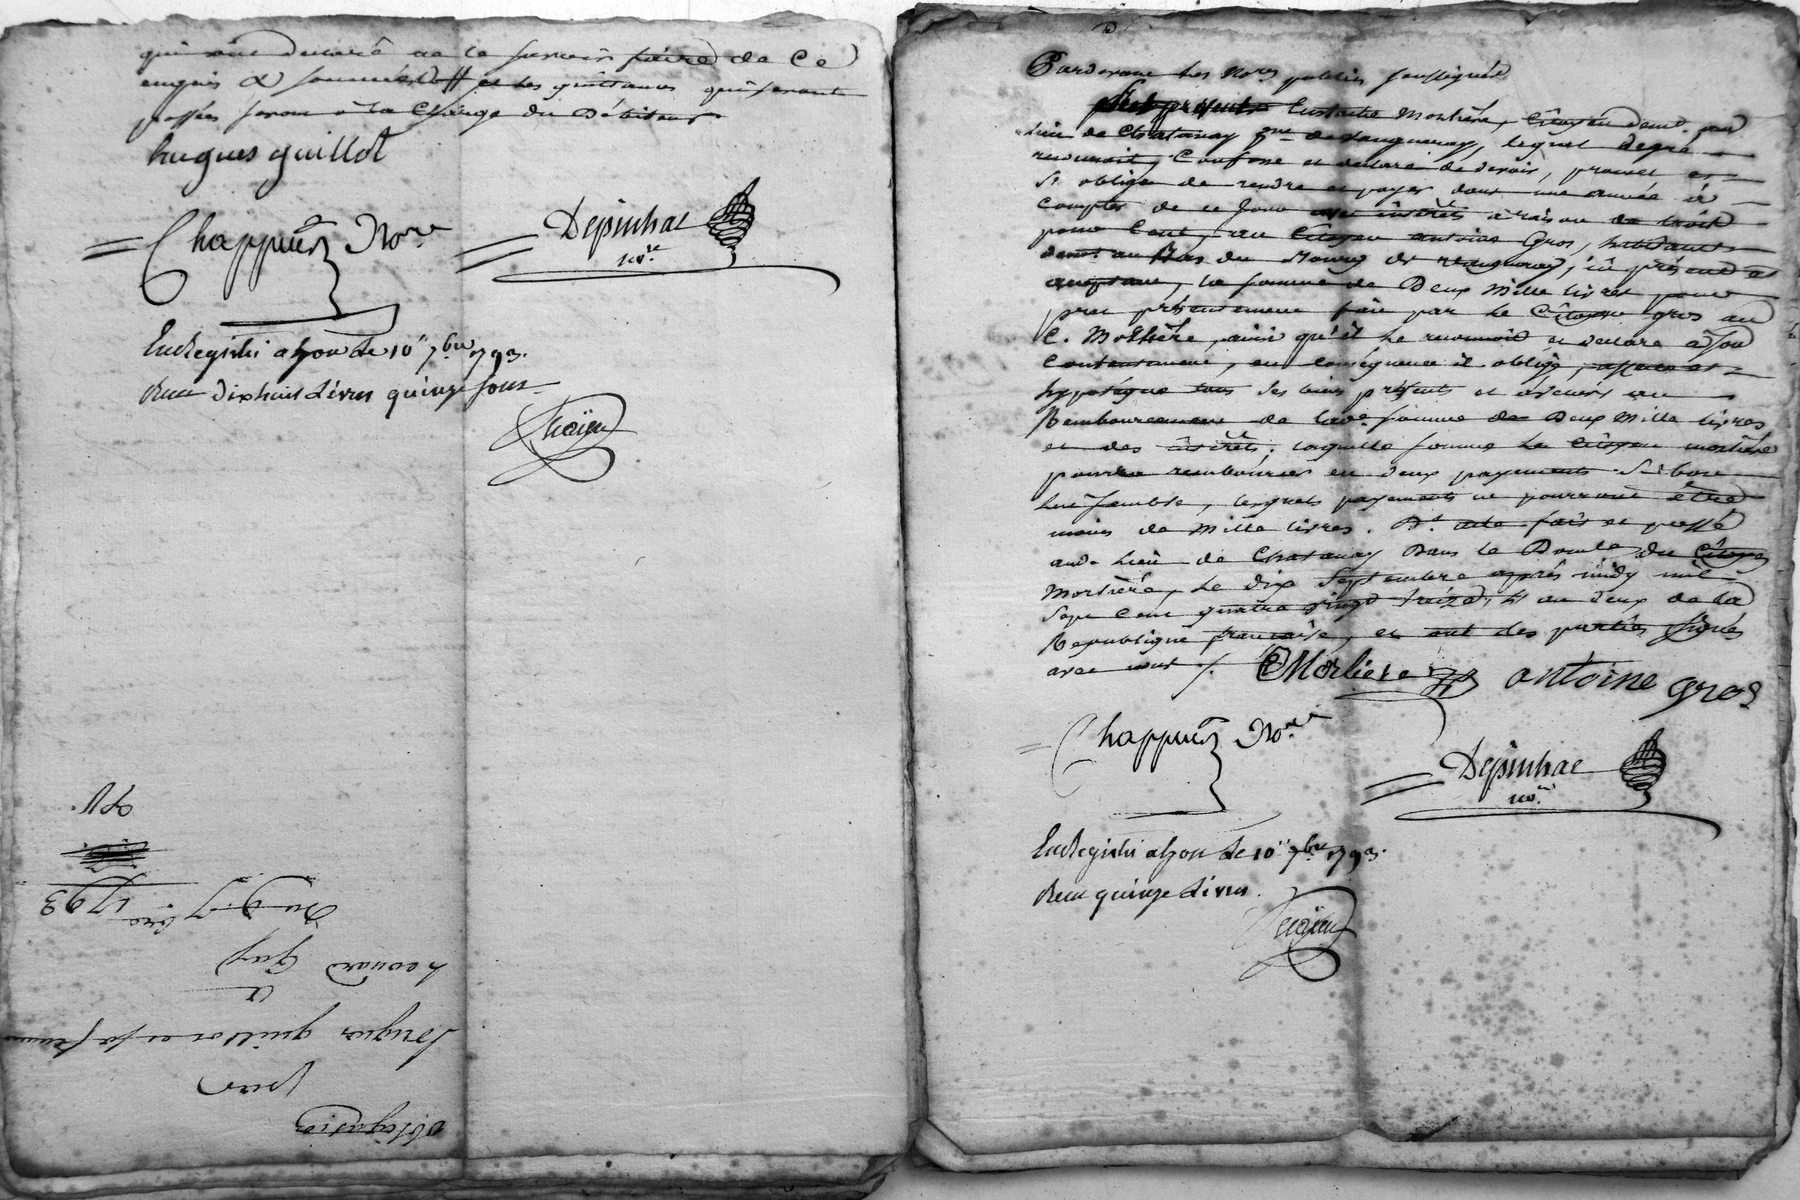 qui ont declaré ne le savoir faire de Ce
enquis & sommés // et les quittances qui seront
passées seront à la charge du Débiteur
hugues guillot
Chappuis Nore
Depinhac
nore
Enregistré a lyon le 10 7bre 1793.
Recu dix huit Livres quinze sous
obligation
pour
hugues guillot et sa femme
a
Leonard Guy
Du 9. 7bre 1793
Pardevant les Nores publics soussignés
Eustache Morlière, Citoyen demt. au
lieu de Chatanay de Vaugneray, lequel degré
reconnoit, Confesse et declare de devoir, promet et
s'oblige de rendre et payer dans une année à
compter de ce jour avec intérêts à raison de
pour Cent, au Citoyen antoine Gros, habitant
demt. au Bas du Bourg de vaugneray, ici présent et
acceptant, la somme de Deux Mille livres pour
pret présentement fait par le Citoyen gros au
C. Morlière, ainsi qu'il le reconnoit et declare à son
Contentement, en conséquence il oblige, et
hypotéque tous ses biens présents et avenirs au
Remboursement de lade. somme de Deux Mille livres
et des intérêts, laquelle somme le Citoyen morlière
pourra rembourser en deux payements si bon
lui semble, lesquels payements ne pourront être
moins de Mille livres. Dt. acte fait et passé
aud. Lieu de Chatanay Dans le Domle. du Citoyen
Morlière, Le dix Septembre après midy mil
Sept Cent quatre vingt treize, an deux de la
Republique francaise, et ont les parties signés
avec nous ./.
EMorliere antoine gros
Chappuis Nore
Depinhac
nore
Enregistré a lyon le 10 7bre 1793.
Recu quinze Livres.